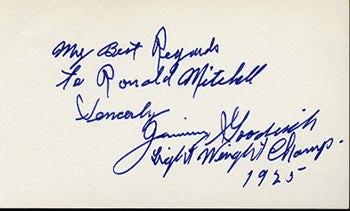 My Best Regards
to Ronald Mitchell
Sincerly
Jimmy Goodrich
Light Weight Champ.
1925